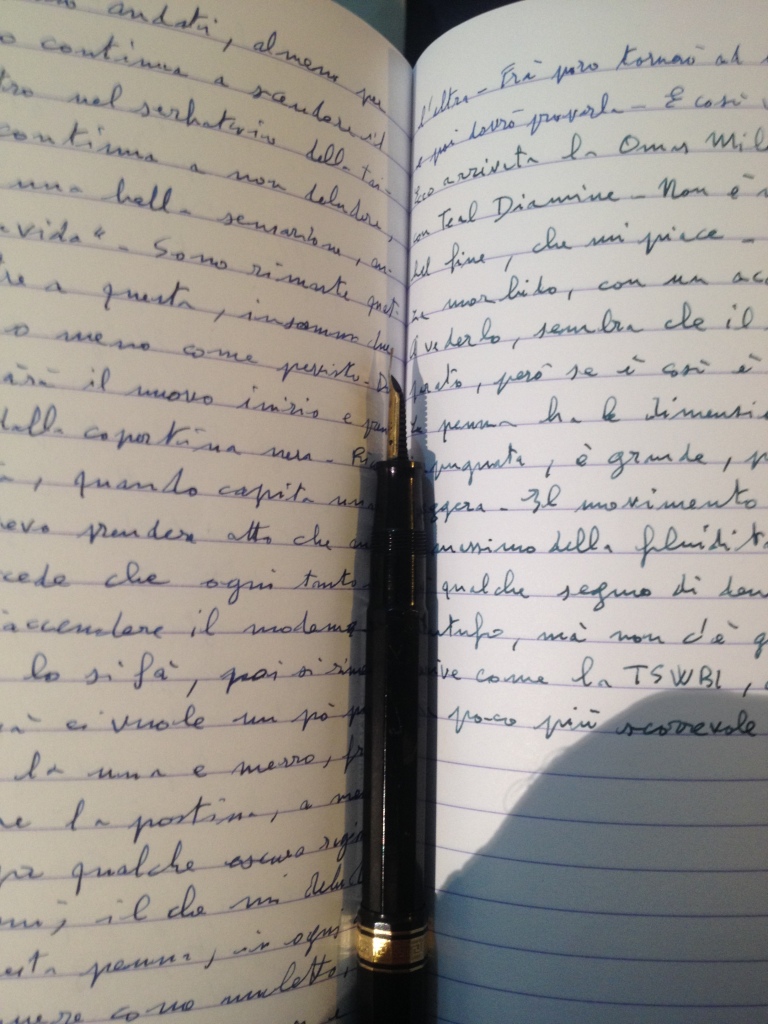 andati, almeno per
o continua a scendere il
tro nel serbatoio della
continua a non deludere,
una bella sensazione,
vida" - Sono rimaste
tre a questa, insomma due
o meno come previsto -
arà il nuovo inizio e
dalla copertina nera -
, quando capita una
evo prendere atto che
cede che ogni tanto
iaccendere il modem
lo si fà, poi si
ci vuole un pò
la una e mezzo,
re la postina, a
qualche oscura
, il che mi
esta penna, in ogni
come muletto,
l'altra - Frà poco tornerò ad
e poi dovrò provarla - E così
Ecco arrivata la Omas Mil
con Teal Diamine - Non è
del fine, che mi piace -
morbido, con un
A vederlo, sembra che il
però se è così è
la penna ha le dimensi
pugnata, è grande, p
eggera - Il movimento
massimo della fluidit
qualche segno di
ntufo, mà non c'è q
ive come la TSWBI,
poco più scorrevole